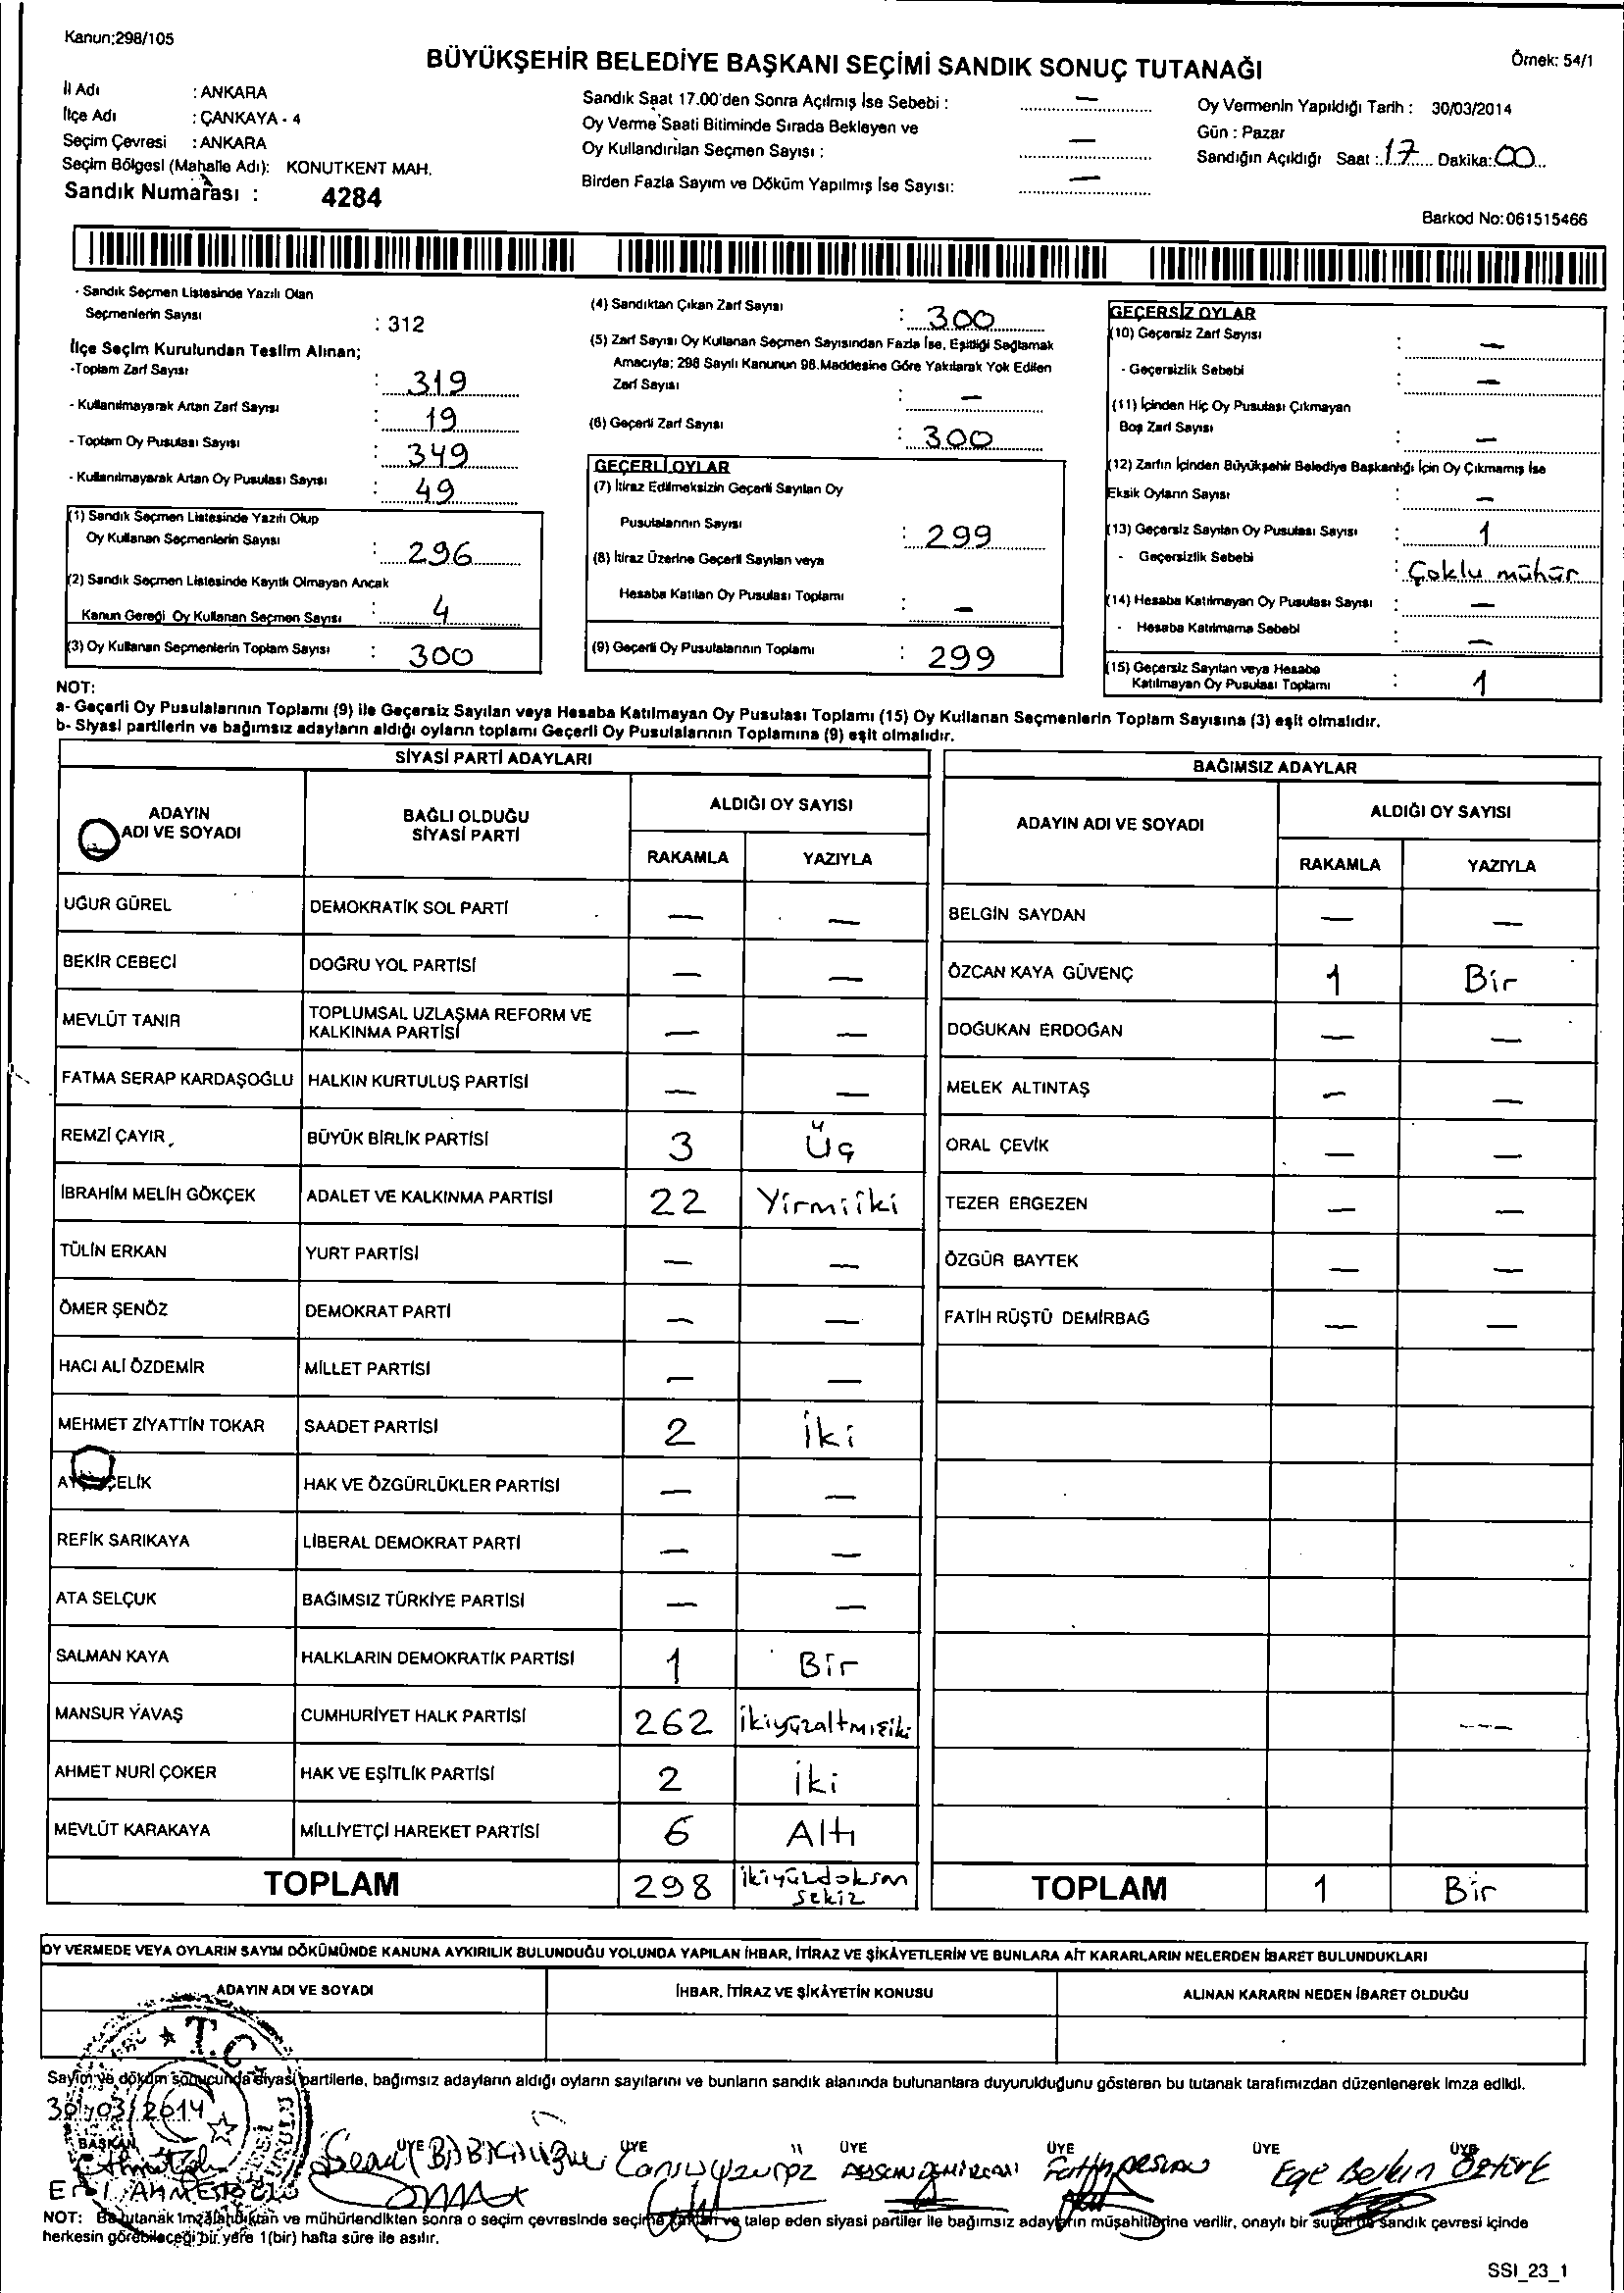 Kanun:298/105
BÜYÜKŞEHİR BELEDİYE BAŞKANI SEÇİMİ SANDIK SONUÇ TUTANAĞI
Örnek: 54/1
İl Adı : ANKARA
İlçe Adı : ÇANKAYA - 4
Seçim Çevresi : ANKARA
Seçim Bölgesi (Mahalle Adı): KONUTKENT MAH.
Sandık Numarası : 4284
Sandık Saat 17.00'den Sonra Açılmış İse Sebebi : —
Oy Verme Saati Bitiminde Sırada Bekleyen ve
Oy Kullandırılan Seçmen Sayısı : —
Birden Fazla Sayım ve Döküm Yapılmış İse Sayısı: —
Oy Vermenin Yapıldığı Tarih : 30/03/2014
Gün : Pazar
Sandığın Açıldığı Saat : 17 Dakika: 00
Barkod No:061515466
- Sandık Seçmen Listesinde Yazılı Olan
Seçmenlerin Sayısı : 312
İlçe Seçim Kurulundan Teslim Alınan;
-Toplam Zarf Sayısı : 319
- Kullanılmayarak Artan Zarf Sayısı : 19
- Toplam Oy Pusulası Sayısı : 349
- Kullanılmayarak Artan Oy Pusulası Sayısı : 49
(1) Sandık Seçmen Listesinde Yazılı Olup
Oy Kullanan Seçmenlerin Sayısı : 296
(2) Sandık Seçmen Listesinde Kayıtlı Olmayan Ancak
Kanun Gereği Oy Kullanan Seçmen Sayısı : 4
(3) Oy Kullanan Seçmenlerin Toplam Sayısı : 300
(4) Sandıktan Çıkan Zarf Sayısı : 300
(5) Zarf Sayısı Oy Kullanan Seçmen Sayısından Fazla İse, Eşitliği Sağlamak
Amacıyla; 298 Sayılı Kanunun 98.Maddesine Göre Yakılarak Yok Edilen
Zarf Sayısı : —
(6) Geçerli Zarf Sayısı : 300
GEÇERLİ OYLAR
(7) İtiraz Edilmeksizin Geçerli Sayılan Oy
Pusulalarının Sayısı : 299
(8) İtiraz Üzerine Geçerli Sayılan veya
Hesaba Katılan Oy Pusulası Toplamı : —
(9) Geçerli Oy Pusulalarının Toplamı : 299
GEÇERSİZ OYLAR
(10) Geçersiz Zarf Sayısı : —
- Geçersizlik Sebebi : —
(11) İçinden Hiç Oy Pusulası Çıkmayan
Boş Zarf Sayısı : —
(12) Zarfın İçinden Büyükşehir Belediye Başkanlığı İçin Oy Çıkmamış İse
Eksik Oyların Sayısı : —
(13) Geçersiz Sayılan Oy Pusulası Sayısı : 1
- Geçersizlik Sebebi : Çoklu mühür
(14) Hesaba Katılmayan Oy Pusulası Sayısı : —
- Hesaba Katılmama Sebebi : —
(15) Geçersiz Sayılan veya Hesaba
Katılmayan Oy Pusulası Toplamı : 1
NOT:
a- Geçerli Oy Pusulalarının Toplamı (9) ile Geçersiz Sayılan veya Hesaba Katılmayan Oy Pusulası Toplamı (15) Oy Kullanan Seçmenlerin Toplam Sayısına (3) eşit olmalıdır.
b- Siyasi partilerin ve bağımsız adayların aldığı oyların toplamı Geçerli Oy Pusulalarının Toplamına (9) eşit olmalıdır.
SİYASİ PARTİ ADAYLARI
ADAYIN ADI VE SOYADI BAĞLI OLDUĞU SİYASİ PARTİ ALDIĞI OY SAYISI
RAKAMLA YAZIYLA
UĞUR GÜREL DEMOKRATİK SOL PARTİ — —
BEKİR CEBECİ DOĞRU YOL PARTİSİ — —
MEVLÜT TANIR TOPLUMSAL UZLAŞMA REFORM VE KALKINMA PARTİSİ — —
FATMA SERAP KARDAŞOĞLU HALKIN KURTULUŞ PARTİSİ — —
REMZİ ÇAYIR BÜYÜK BİRLİK PARTİSİ 3 Üç
İBRAHİM MELİH GÖKÇEK ADALET VE KALKINMA PARTİSİ 22 Yirmiiki
TÜLİN ERKAN YURT PARTİSİ — —
ÖMER ŞENÖZ DEMOKRAT PARTİ — —
HACI ALİ ÖZDEMİR MİLLET PARTİSİ — —
MEHMET ZİYATTİN TOKAR SAADET PARTİSİ 2 İki
ÇELİK HAK VE ÖZGÜRLÜKLER PARTİSİ — —
REFİK SARIKAYA LİBERAL DEMOKRAT PARTİ — —
ATA SELÇUK BAĞIMSIZ TÜRKİYE PARTİSİ — —
SALMAN KAYA HALKLARIN DEMOKRATİK PARTİSİ 1 Bir
MANSUR YAVAŞ CUMHURİYET HALK PARTİSİ 262 İkiyüzaltmışiki
AHMET NURİ ÇOKER HAK VE EŞİTLİK PARTİSİ 2 İki
MEVLÜT KARAKAYA MİLLİYETÇİ HAREKET PARTİSİ 6 Altı
TOPLAM 298 ikiyüzdoksan sekiz
BAĞIMSIZ ADAYLAR
ADAYIN ADI VE SOYADI ALDIĞI OY SAYISI
RAKAMLA YAZIYLA
BELGİN SAYDAN — —
ÖZCAN KAYA GÜVENÇ 1 Bir
DOĞUKAN ERDOĞAN — —
MELEK ALTINTAŞ — —
ORAL ÇEVİK — —
TEZER ERGEZEN — —
ÖZGÜR BAYTEK — —
FATİH RÜŞTÜ DEMİRBAĞ — —
TOPLAM 1 Bir
OY VERMEDE VEYA OYLARIN SAYIM DÖKÜMÜNDE KANUNA AYKIRILIK BULUNDUĞU YOLUNDA YAPILAN İHBAR, İTİRAZ VE ŞİKÂYETLERİN VE BUNLARA AİT KARARLARIN NELERDEN İBARET BULUNDUKLARI
ADAYIN ADI VE SOYADI İHBAR, İTİRAZ VE ŞİKÂYETİN KONUSU ALINAN KARARIN NEDEN İBARET OLDUĞU
T.C.
Sayım ve döküm sonucunda siyasi partilerle, bağımsız adayların aldığı oyların sayılarını ve bunların sandık alanında bulunanlara duyurulduğunu gösteren bu tutanak tarafımızdan düzenlenerek imza edildi.
30/03/2014
BAŞKAN ÜYE ÜYE ÜYE ÜYE ÜYE ÜYE
Ege Berkin Öztürk
NOT: Bu tutanak imzalandıktan ve mühürlendikten sonra o seçim çevresinde seçime katılan ve talep eden siyasi partiler ile bağımsız adayların müşahitlerine verilir, onaylı bir sureti de sandık çevresi içinde
herkesin görebileceği bir yere 1(bir) hafta süre ile asılır.
SSI_23_1